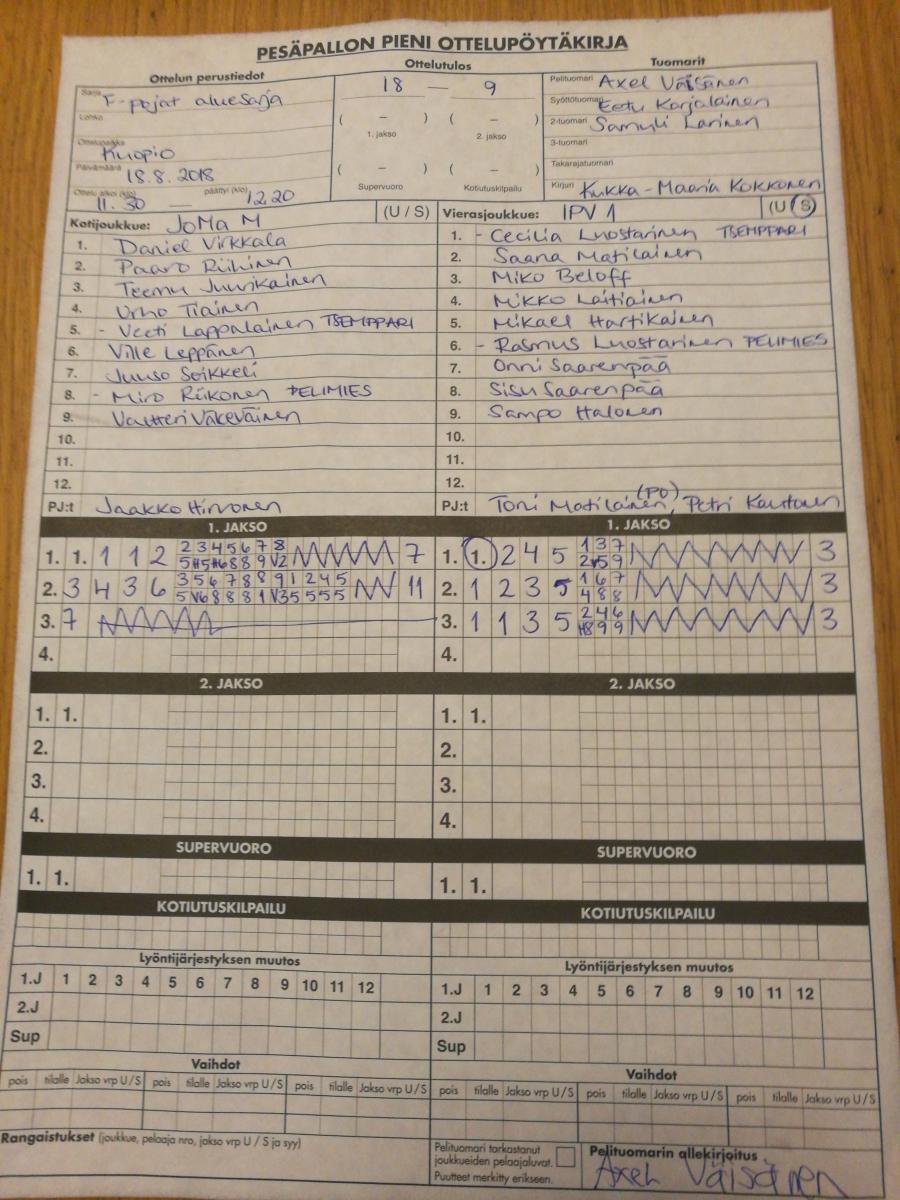 PESÄPALLON PIENI OTTELUPÖYTÄKIRJA
Ottelun perustiedot
Sarja F-pojat aluesarja
Lohko
Ottelupaikka Kuopio
Päivämäärä 18.8.2018
Ottelu alkoi (klo) 11.30 — päättyi (klo) 12.20
Ottelutulos
18 — 9
( – ) ( – )
1. jakso 2. jakso
( – ) ( – )
Supervuoro Kotiutuskilpailu
Tuomarit
Pelituomari Axel Väisänen
Syöttötuomari Eetu Karjalainen
2-tuomari Samuli Larinen
3-tuomari
Takarajatuomari
Kirjuri Kukka-Maaria Kokkonen
Kotijoukkue: JoMa M (U / S)
1. Daniel Virkkala
2. Paavo Riihinen
3. Teemu Juurikainen
4. Urho Tiainen
5. - Veeti Lappalainen TSEMPPARI
6. Ville Leppänen
7. Juuso Seikkeli
8. - Miro Riikonen PELIMIES
9. Valtteri Väkeväinen
10.
11.
12.
PJ:t Jaakko Hirvonen
Vierasjoukkue: IPV 1 (U / S)
1. - Cecilia Luostarinen TSEMPPARI
2. Saana Matilainen
3. Miko Beloff
4. Mikko Laitiainen
5. Mikael Hartikainen
6. - Rasmus Luostarinen PELIMIES
7. Onni Saarenpää
8. Sisu Saarenpää
9. Sampo Halonen
10.
11.
12.
PJ:t Toni Matilainen (PO), Petri Kautonen
1. JAKSO
1. 1. 1 1 2 2 3 4 5 6 7 8 7
2. 3 4 3 6 3 5 6 7 8 8 9 1 2 4 5 11
3. 7
4.
1. JAKSO
1. 1. 2 4 5 1 3 7 3
2. 1 2 3 5 1 6 7 4 8 8 3
3. 1 1 3 5 2 4 6 3
4.
2. JAKSO
1. 1.
2.
3.
4.
2. JAKSO
1. 1.
2.
3.
4.
SUPERVUORO
1. 1.
SUPERVUORO
1. 1.
KOTIUTUSKILPAILU
KOTIUTUSKILPAILU
Lyöntijärjestyksen muutos
1.J 1 2 3 4 5 6 7 8 9 10 11 12
2.J
Sup
Lyöntijärjestyksen muutos
1.J 1 2 3 4 5 6 7 8 9 10 11 12
2.J
Sup
Vaihdot
pois tilalle Jakso vrp U/S pois tilalle Jakso vrp U/S pois tilalle Jakso vrp U/S
Vaihdot
pois tilalle Jakso vrp U/S pois tilalle Jakso vrp U/S pois tilalle Jakso vrp U/S
Rangaistukset (joukkue, pelaaja nro, jakso vrp U / S ja syy)
Pelituomari tarkastanut
joukkueiden pelaajaluvat.
Puutteet merkitty erikseen.
Pelituomarin allekirjoitus
Axel Väisänen